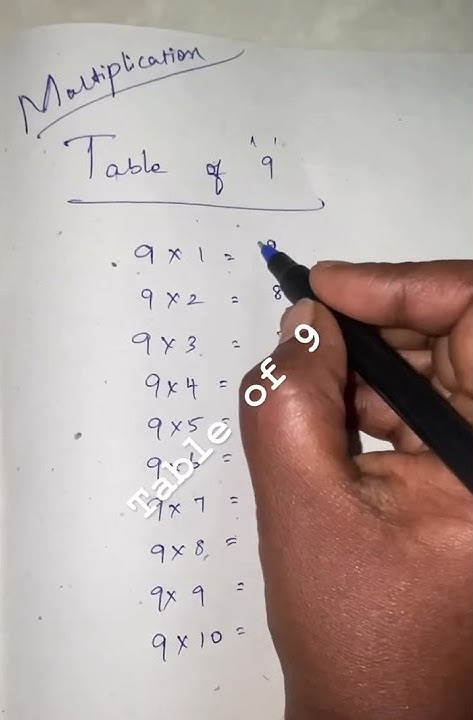 Multiplication
Table of '9'
9 x 1 = 9
9 x 2 = 8
9 x 3 =
9 x 4 =
9 x 5 =
9 x 6 =
9 x 7 =
9 x 8 =
9 x 9 =
9 x 10 =
Table of 9